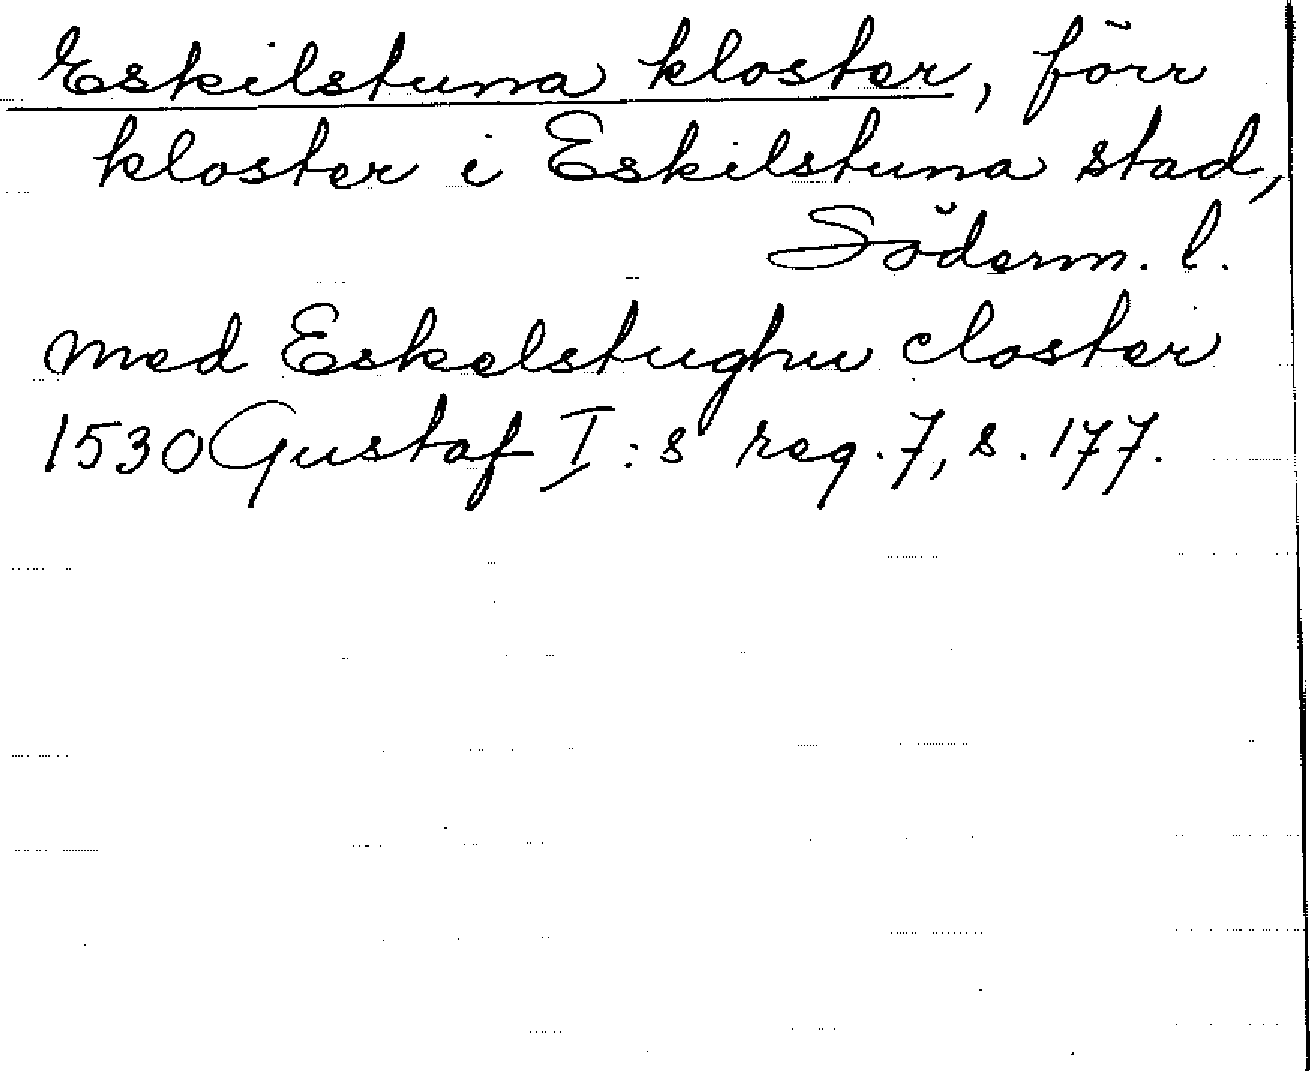 Eskilstuna kloster, förr
kloster i Eskilstuna stad,
Söderm. l.
med Eskelstughu closter
1530 Gustaf I:s reg. 7, s. 177.